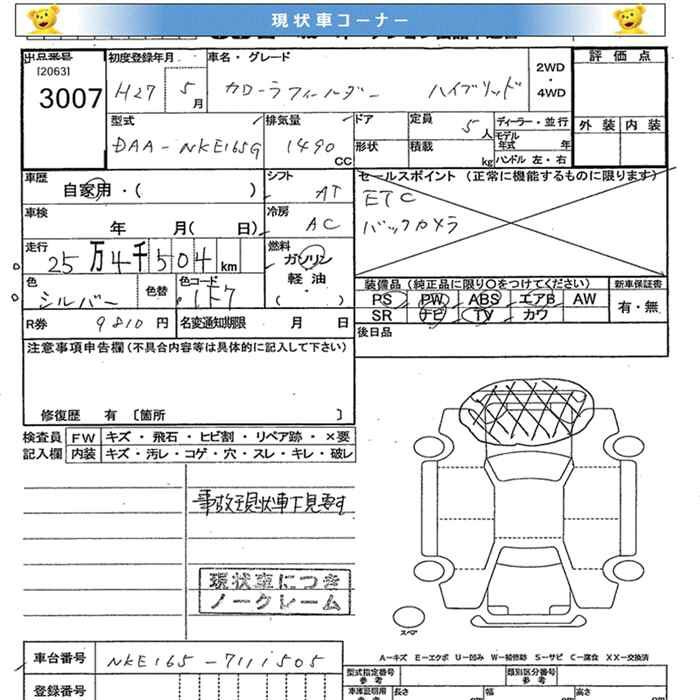 現状車コーナー
出品番号 初度登録年月 車名・グレード 評価点
[2063]
3007 H27 5月 カローラフィールダー ハイブリッド 2WD・4WD
型式 排気量 ドア 定員 5人 ディーラー・並行 外装 内装
DAA-NKE165G 1490CC 形状 積載 kg モデル年式 年
ハンドル 左・右
車歴 シフト セールスポイント (正常に機能するものに限ります)
自家用・( ) AT ETC
車検 冷房 バックカメラ
年 月( 日) AC
走行 燃料
25万4千504km ガソリン
軽油
( )
色 色替 色コード 装備品(純正品に限り○をつけてください) 新車保証書
シルバー 1F7 PS PW ABS エアB AW 有・無
R券 9810円 名変通知期限 月 日 SR ナビ TV カワ
注意事項申告欄(不具合内容等は具体的に記入して下さい) 後日品
修復歴 有 〔箇所 〕
検査員 FW キズ・飛石・ヒビ割・リペア跡・×要
記入欄 内装 キズ・汚レ・コゲ・穴・スレ・キレ・破レ
事故現状車下見要す
現状車につき
ノークレーム
スペア
A−キズ E−エクボ U−凹み W−補修跡 S−サビ C−腐食 XX−交換済
車台番号 NKE165-7111505 型式指定番号 参考 類別区分番号 参考
登録番号 車庫証明用 参考 長さ cm 幅 cm 高さ cm